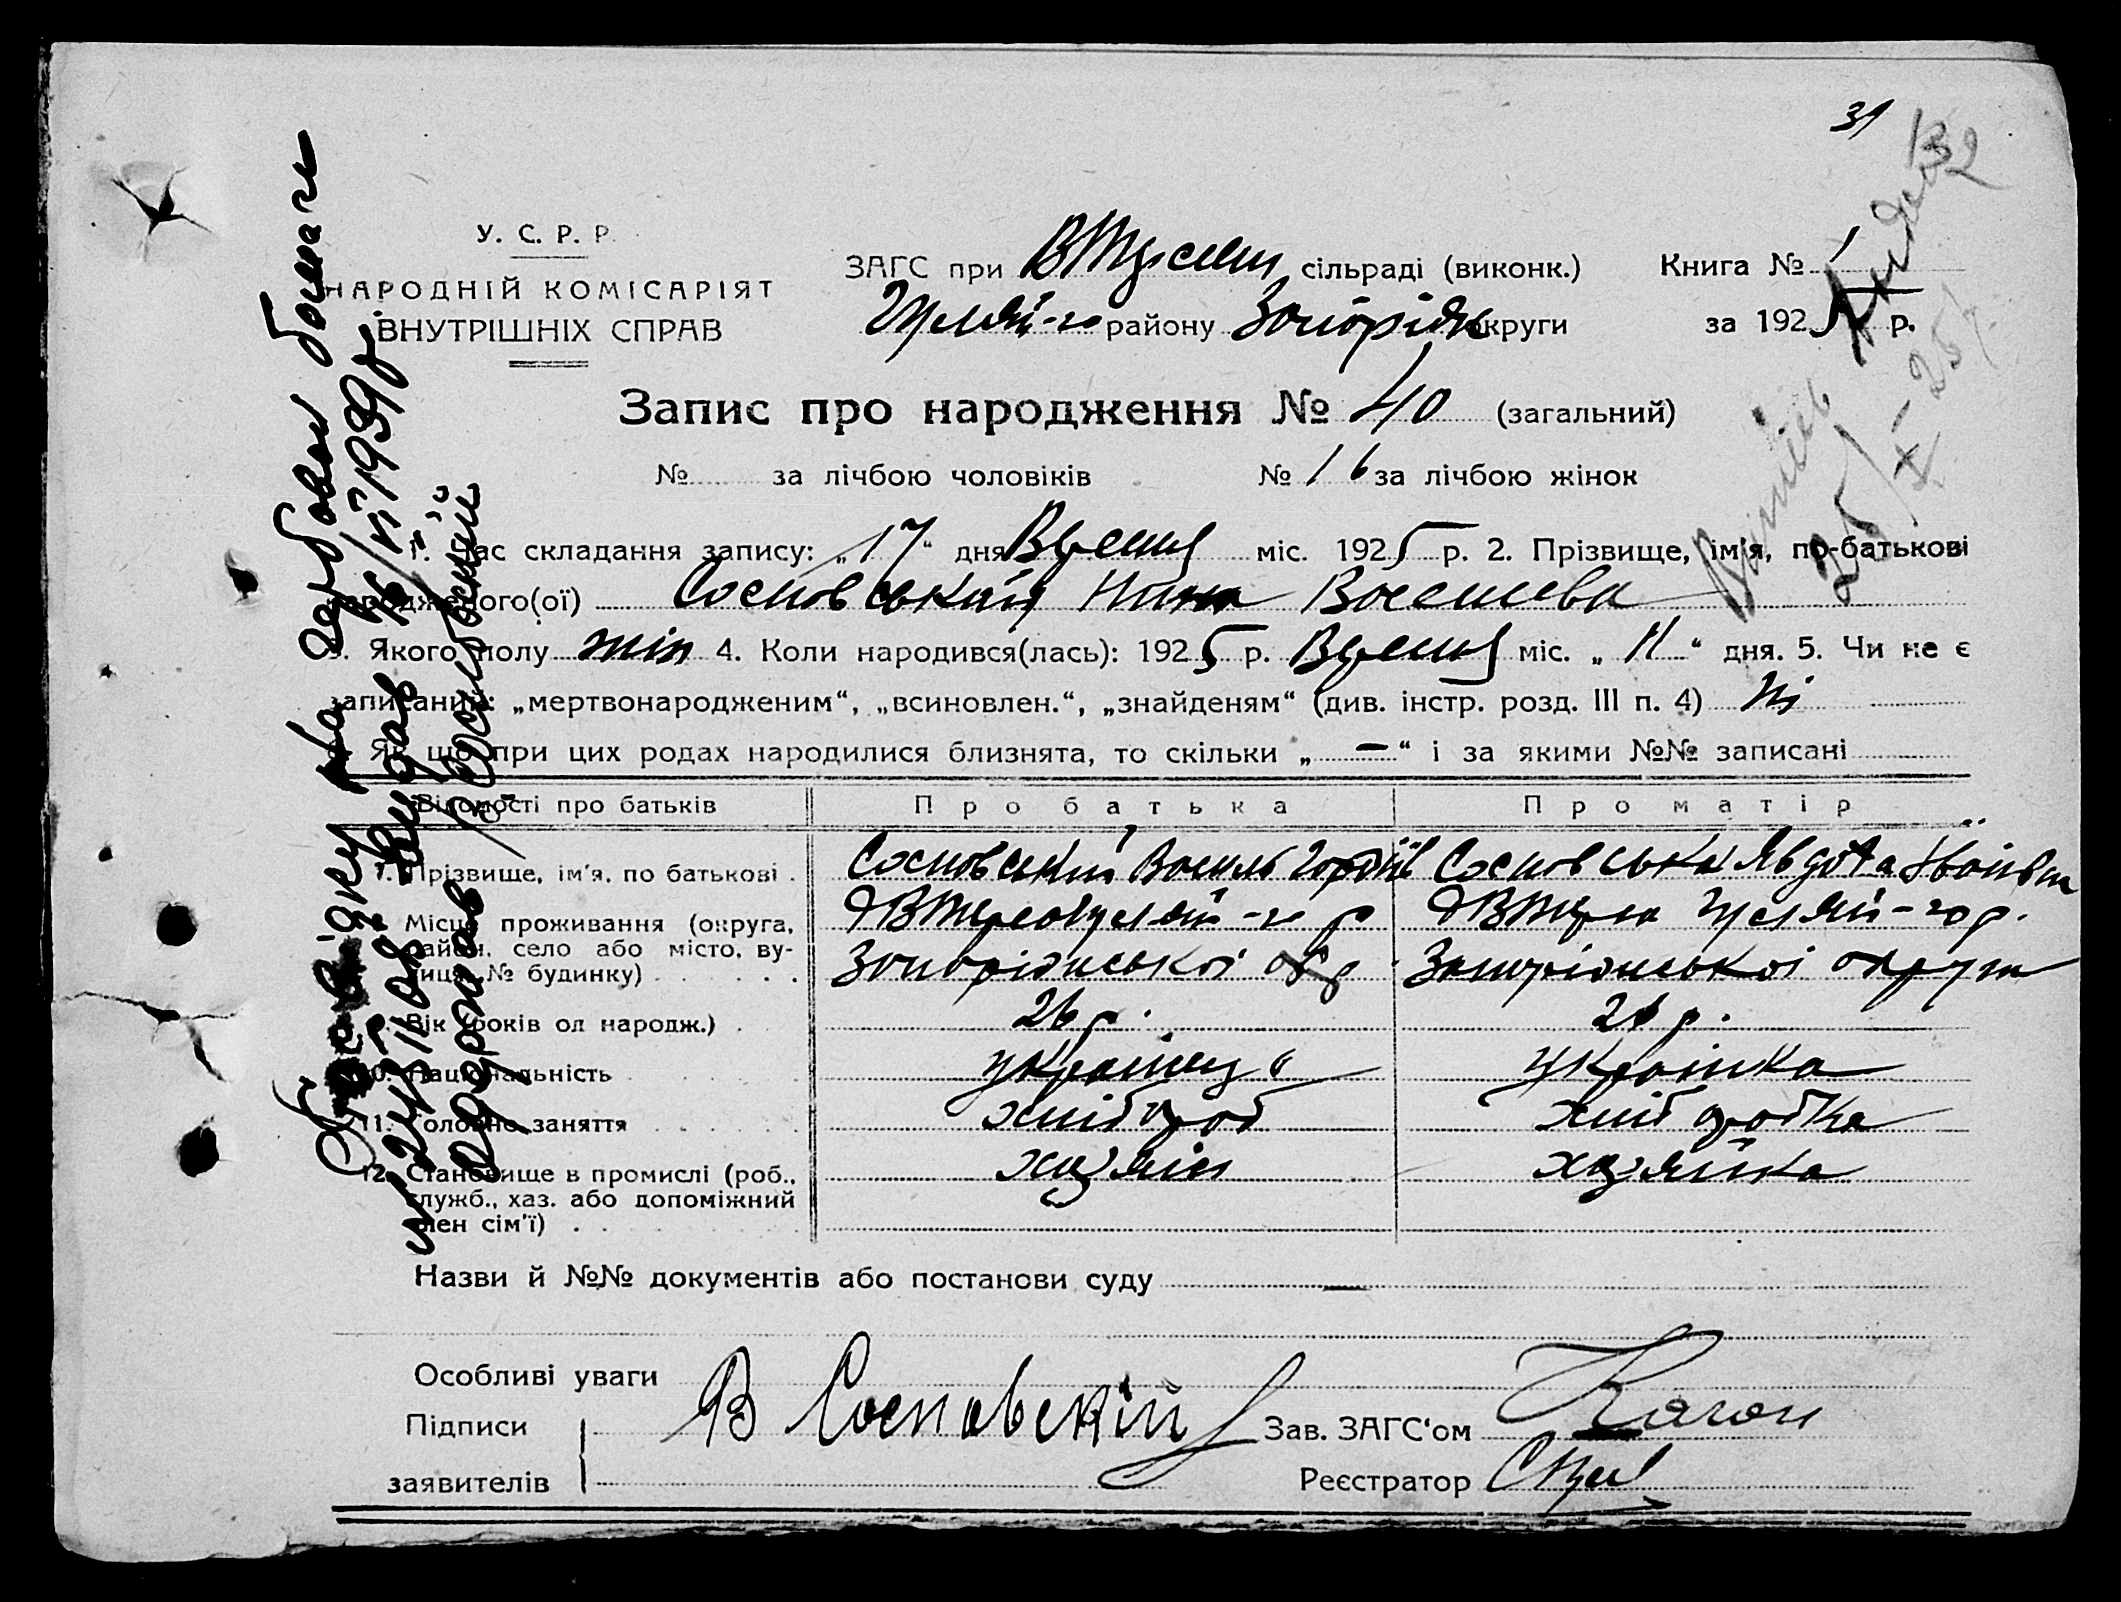 31
132
У. С. Р. Р.
НАРОДНІЙ КОМІСАРІЯТ
ВНУТРІШНІХ СПРАВ
ЗАГС при сільраді (виконк.)
району Запоріж округи
Книга № 1
за 1925 р.
Запис про народження № 40 (загальний)
№ за лічбою чоловіків № 16 за лічбою жінок
1. Час складання запису: „17“ дня Вресня міс. 1925 р. 2. Прізвище, ім'я, по-батькові
народженого(ої) Сосновськая Нина Васильева
3. Якого полу жін 4. Коли народився(лась): 1925 р. Вресня міс. „11“ дня. 5. Чи не є
записаний: „мертвонародженим“, „всиновлен.“, „знайденям“ (див. інстр. розд. III п. 4) ні
6. Як що при цих родах народилися близнята, то скільки „—“ і за якими №№ записані
Відомості про батьків Про батька Про матір
7. Прізвище, ім'я, по батькові . Сосновський Василь Гордіїв Сосновська Явдоха Іванівна
8. Місце проживання (округа,
район, село або місто, ву-
лиця, № будинку) Запоріжської окр Запоріжської округи
9. Вік (років од народж.) . 26 р. 26 р.
10. Національність українец українка
11. Головне заняття хліборob хліборобка
12. Становище в промислі (роб., хазяін хазяйка
служб., хаз. або допоміжний
член сім'ї)
Назви й №№ документів або постанови суду —
Особливі уваги
Підписи В Сосновскій Зав. ЗАГС'ом Каган
заявителів Реєстратор
Довідку на гербовой бомаги
видав 1939 р.
Одержав Сосновский